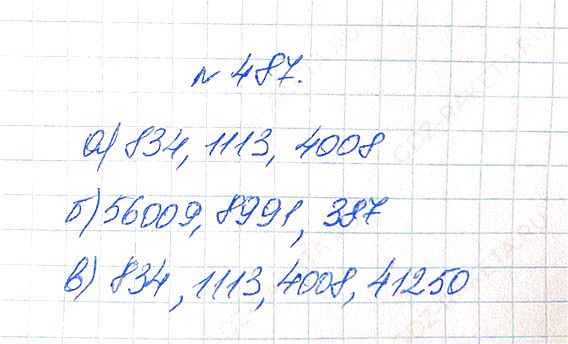 № 487.
а) 834, 1113, 4008
б) 56009, 8991, 387
в) 834, 1113, 4008, 41250